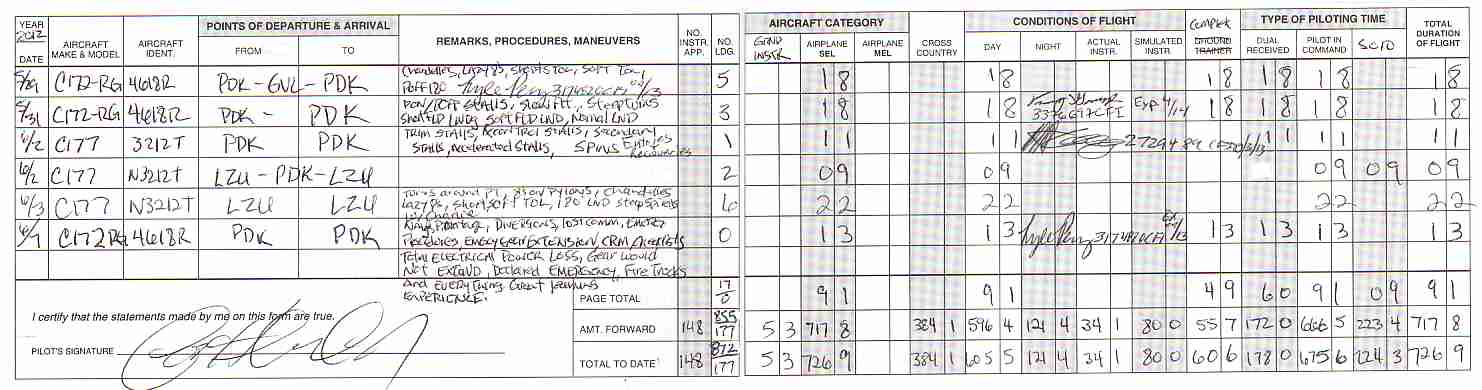 YEAR 2012 POINTS OF DEPARTURE & ARRIVAL AIRCRAFT CATEGORY CONDITIONS OF FLIGHT TYPE OF PILOTING TIME
DATE AIRCRAFT MAKE & MODEL AIRCRAFT IDENT. FROM TO REMARKS, PROCEDURES, MANEUVERS NO. INSTR. APP. NO. LDG. GRND INSTR AIRPLANE SEL AIRPLANE MEL CROSS COUNTRY DAY NIGHT ACTUAL INSTR. SIMULATED INSTR. Complex GROUND TRAINER DUAL RECEIVED PILOT IN COMMAND SOLO TOTAL DURATION OF FLIGHT
5/29 C172-RG 4618R PDK - GVL - PDK Chandelles, Lazy 8s, Short TOL, Soft TOL, 5 1 8 1 8 1 8 1 8 1 8 1 8
Poff 180 Kyle
5/31 C172-RG 4618R PDK - PDK PON/POFF STALLS, Slow Flt, Steep turns 3 1 8 1 8 3376697CFI Exp 4/14 1 8 1 8 1 8 1 8
Short FLD LNDG, Soft FLD LND, Normal LND
6/2 C177 3212T PDK PDK TRIM STALLS, Cross Ctrl STALLS, Secondary 1 1 1 1 1 1 1 1 1 1 1
STALLS, Accelerated STALLS, SPINS Entries Recoveries
6/2 C177 N3212T LZU - PDK - LZU 2 0 9 0 9 0 9 0 9 0 9
6/3 C177 N3212T LZU LZU Turns around Pt, 8s on Pylons, Chandelles 6 2 2 2 2 2 2 2 2
Lazy 8s, Short, Soft TOL, 180 LND Steep Spirals
6/7 C172RG 4618R PDK PDK Diversions, lost comm, Emerg 0 1 3 1 3 1 3 1 3 1 3 1 3
Procedures, Emerg Gear Extension, CRM, Checklists
Total ELECTRICAL POWER LOSS, Gear would
Not EXTEND, Declared EMERGENCY, Fire Trucks
and EVERYTHING Great learning
EXPERIENCE.
PAGE TOTAL 17/0 9 1 9 1 4 9 6 0 9 1 0 9 9 1
I certify that the statements made by me on this form are true.
AMT. FORWARD 148 855/177 5 3 717 8 384 1 596 4 121 4 34 1 80 0 55 7 172 0 666 5 223 4 717 8
PILOT'S SIGNATURE
TOTAL TO DATE 148 872/177 5 3 726 9 384 1 605 5 121 4 34 1 80 0 60 6 178 0 675 6 224 3 726 9